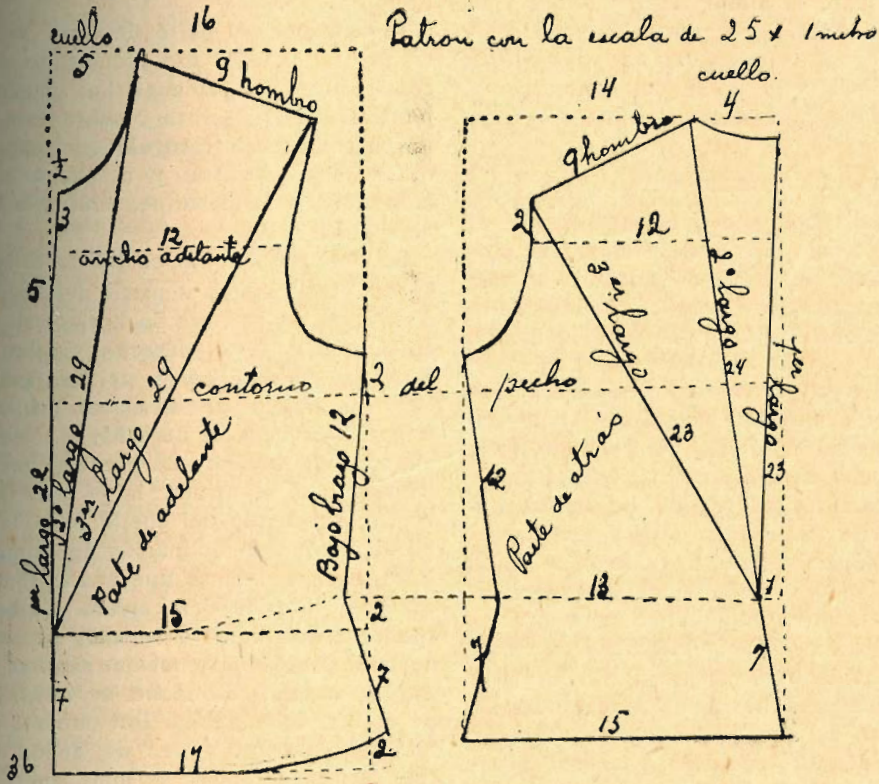 Patron con la escala de 25 x 1 metro
16
cuello
5
9 hombro
7
3
12
ancho adelante
5
29
29
contorno del pecho
2
per largo 22
2º largo
3er largo
Parte de adelante
Bajo brazo 12
15
2
7
7
2
17
36
cuello.
14
4
9 hombro
2
12
3er largo
2º largo
24
per largo
23
23
Parte de atrás
12
13
1
7
7
15